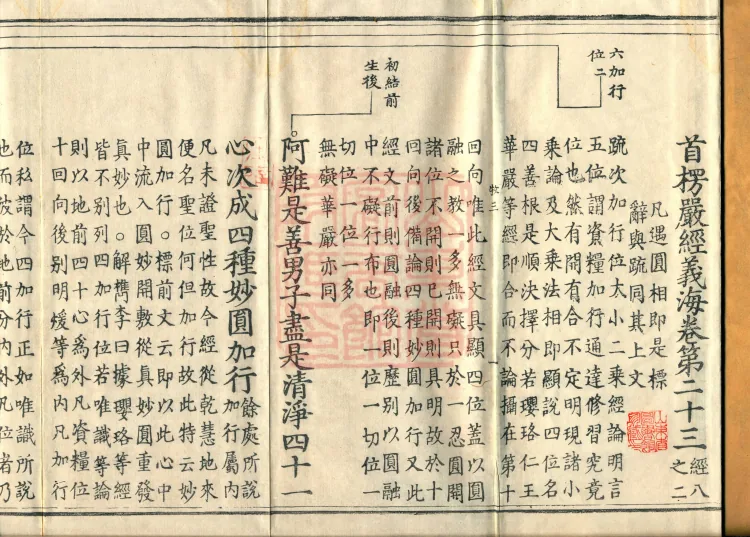 首楞嚴經義海卷第二十三 經八之二
凡遇圓相即是標
辭與䟽同其上文
六加行
位二
䟽次加行位太小二乘經論明言
五位謂資糧加行通達修習究竟
位也然有開有合不定明現諸小
乘論及大乘法相即顯說四位名
四善根是順決擇分若瓔珞仁王
華嚴等經即合而不論攝在第十
牧三 一
回向唯此經文具顯四位蓋以圓
融之教一多無礙只於一忍圓開
諸位不開則已開則具明故於十
回向後備論四種妙圓加行又此
經文前則圓融後則歷別以圓融
中不礙行布也即一位一切位一
切位一位一多
無礙華嚴亦同
初結前
生後
阿難是善男子盡是清淨四十一
心次成四種妙圓加行 餘處所說加行屬内
凡未證聖性故今經從乾慧地來
便名聖位何但加行故此特云妙
圓加行○標前文云即以此心中
中流入圓妙開敷從真妙圓重發
真妙也○解檇李曰據瓔珞等經
皆不別列四加行位若唯識等論
則以地前四十心爲外凡資糧位
十回向後別明煖等爲内凡加行
位私謂今四加行正如唯識所說
也而彼於地前分内外凡位者乃